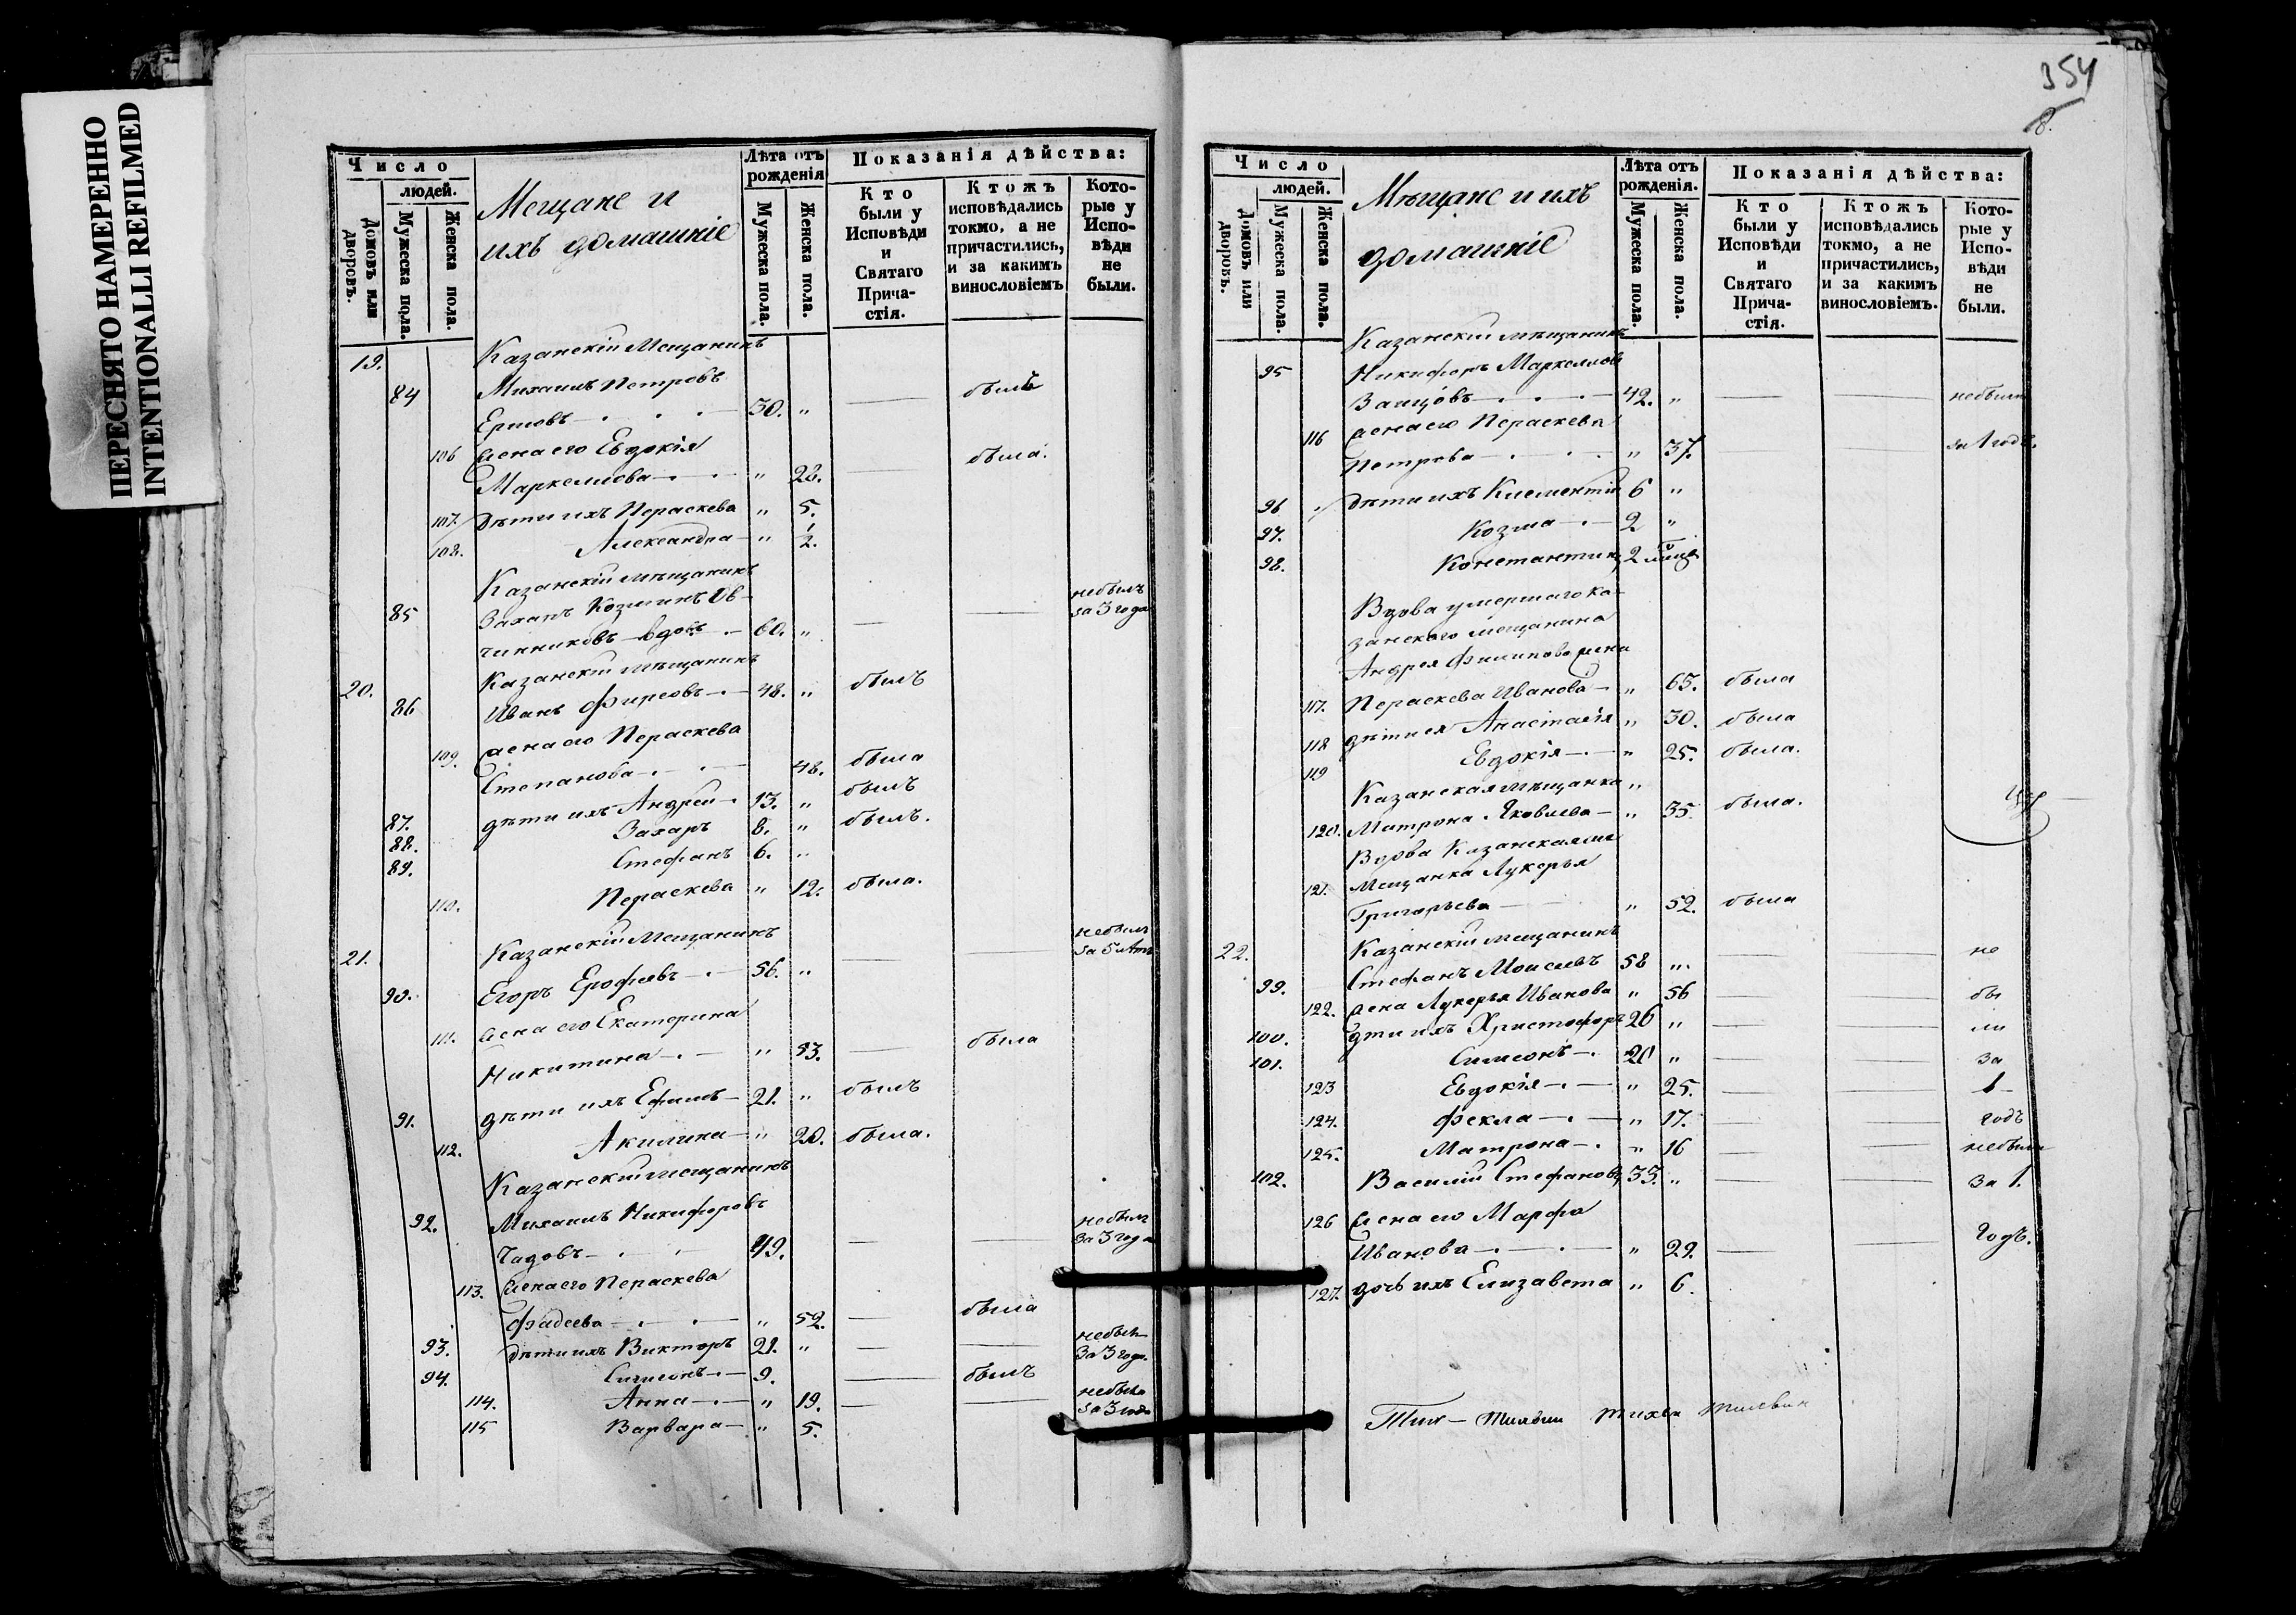 ПЕРЕСНЯТО НАМЕРЕННО
INTENTIONALLI REFILMED
Число
людей.
Домовъ или дворовъ.
Мужеска пола.
Женска пола.
Мещане и
ихъ домашніе
Лѣта отъ рожденія
Мужеска пола.
Женска пола.
Показанія дѣйства:
Кто были у Исповѣди и Святаго Прича-стія.
Ктожъ исповѣдались токмо, а не причастились, и за какимъ винословіемъ
Кото-рые у Испо-вѣди не были.
19. Казанскій Мещанинъ
84 Михаилъ Петровъ
Ершовъ 30. " — былъ
106 жена его Евдокія
Маркеллова " 28. — была.
107. дѣти ихъ Параскева " 5.
108. Александра " 1/2.
Казанскій мѣщанинъ
85 Козминъ Ов-
чинниковъ вдовъ 60. " — — небылъ за 3 года
20. Казанскій мѣщанинъ
86 Иванъ Фирсовъ 48. " былъ
109. жена его Параскева
Степанова 48. была
87. дѣти ихъ Андрей 13. " былъ
88. Захаръ 8. " былъ.
89. Стефанъ 6. "
110. Параскева " 12. была.
21. Казанскій Мещанинъ
90. Егоръ Ерофѣевъ 56. " — — небылъ за 5 лѣтъ
111. жена его Екатерина
Никитина " 53. — была
91. дѣти ихъ Ефимъ 21. " былъ
112. Акилина " 20. была.
Казанскій мещанинъ
92. Михаилъ Никифоровъ
Чадовъ 49. — — небылъ за 3 года
113. жена его Параскева
Фадеева " 52. — была
93. дѣти ихъ Викторъ 21. " — — небылъ за 3 года
94. Симеонъ 9. — былъ
114. Анна " 19. — — небыла за 3 года
115 Варвара " 5.
354
8.
Число
людей.
Домовъ или дворовъ.
Мужеска пола.
Женска пола.
Мѣщане и ихъ
домашніе
Лѣта отъ рожденія.
Мужеска пола.
Женска пола.
Показанія дѣйства:
Кто были у Исповѣди и Святаго Прича-стія.
Ктожъ исповѣдались токмо, а не причастились, и за какимъ винословіемъ.
Кото-рые у Испо-вѣди не были.
Казанскій мѣщанинъ
95 Никифоръ Маркелловъ
42. " — — небыли
116 жена его Параскева
Петрова " 37. — за 1 годъ.
96 дѣти ихъ Климентій 6 "
97. Козма 2 "
98. Константинъ 2
Вдова умершаго ка-
занскаго мещанина
Андрея Филипова жена
117. Параскева Иванова " 65. была
118 дѣти ея Анастасія " 30. была
119 Евдокія " 25. была.
Казанская мѣщанка "
120. Матрона Яковлева " 35. была.
Вдова Казанская
121. мещанка Лукерья
Григорьева " 52. была
22. Казанскій мещанинъ
99. Стефанъ Моисеевъ 58 " — — не
122. жена Лукерья Иванова " 56 — — бы
100. дѣти ихъ Христофоръ 26 " — — ли
101. Симеонъ 20 " — — за
123 Евдокія " 25. — — 1
124. Фекла " 17. — — годъ
125. Матрона " 16 — — небыли
102. Василій Стефановъ 33. " — — за 1.
126 жена его Марфа
Иванова " 29. — — годъ.
127. дочь ихъ Елизавета " 6.